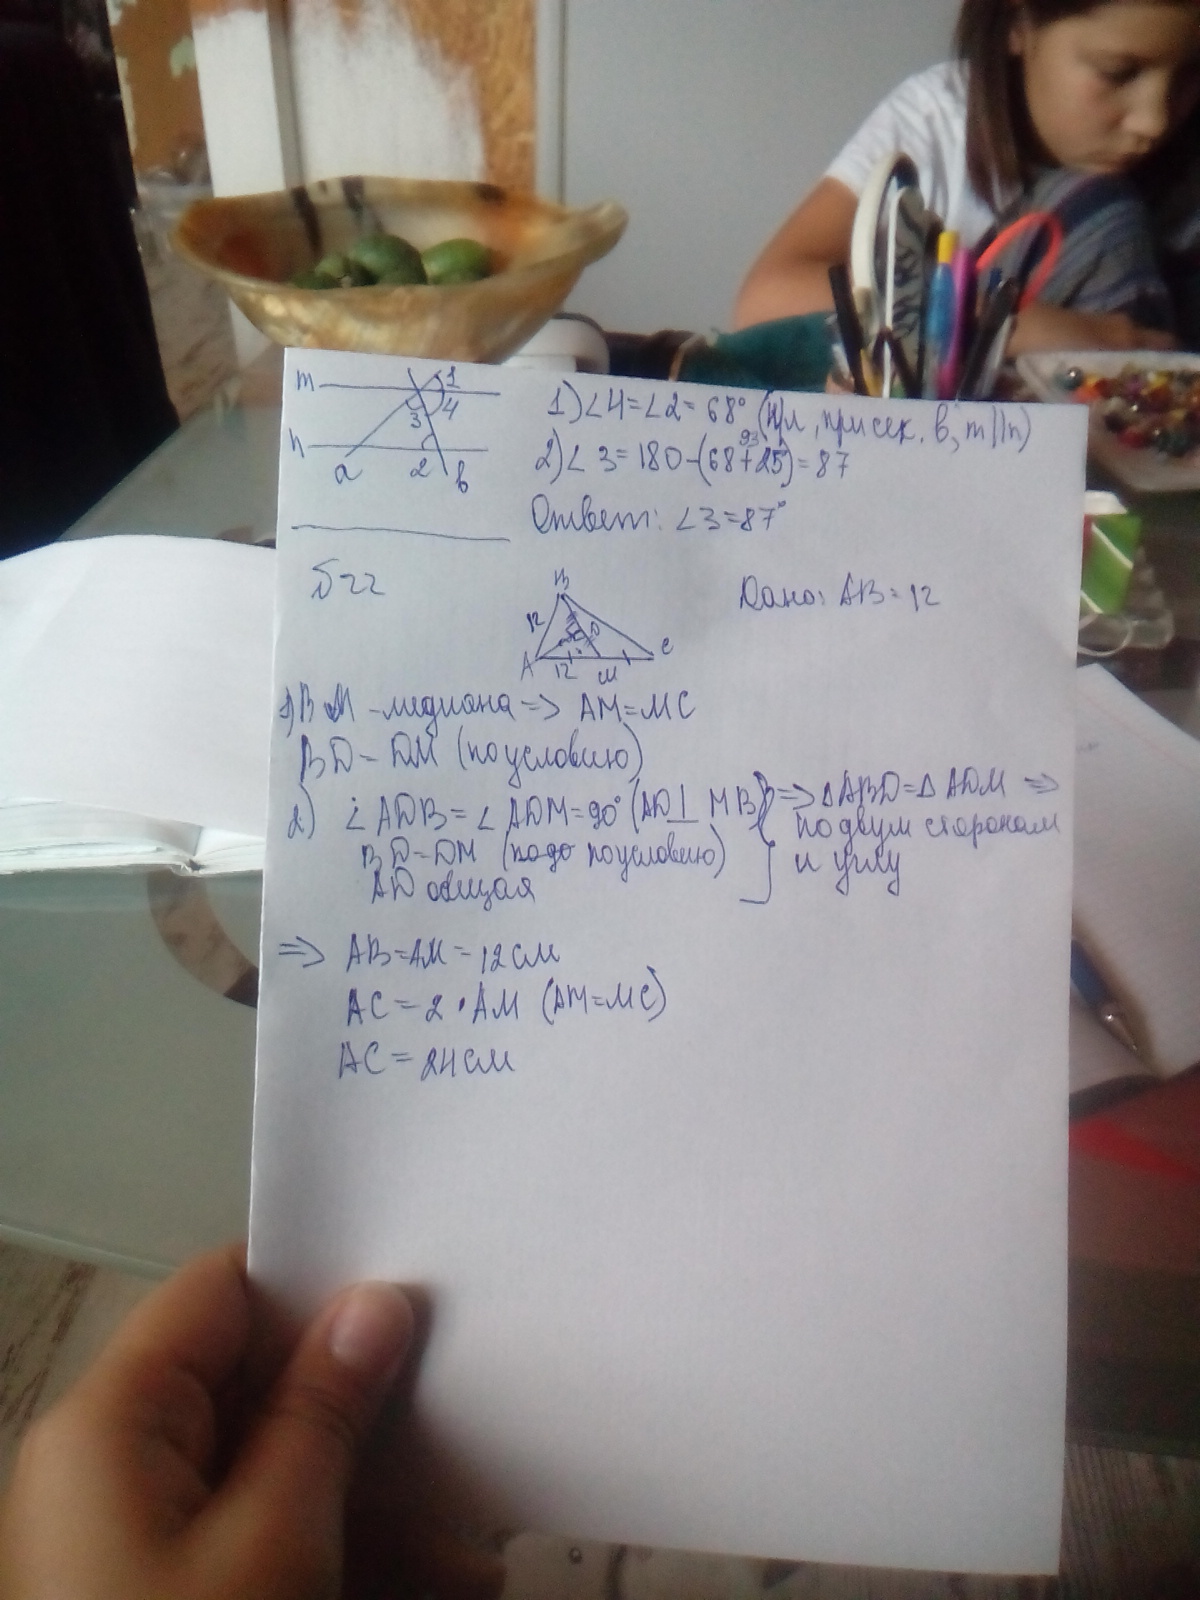 m
1
3
4
n
a
2
b
1) ∠4=∠2=68° (н/л, при сек. b, m||n)
93
2) ∠3=180-(68+25)=87
Ответ: ∠3=87°
Дано: AB=12
B
12
D
A
C
12
M
1) BM -медиана => AM=MC
BD=DM (по условию)
2) ∠ADB=∠ADM=90° (AD⊥MB) => ΔABD=ΔADM =>
BD=DM (по условию) по двум сторонам
AD общая и углу
=> AB=AM=12см
AC=2·AM (AM=MC)
AC=24см